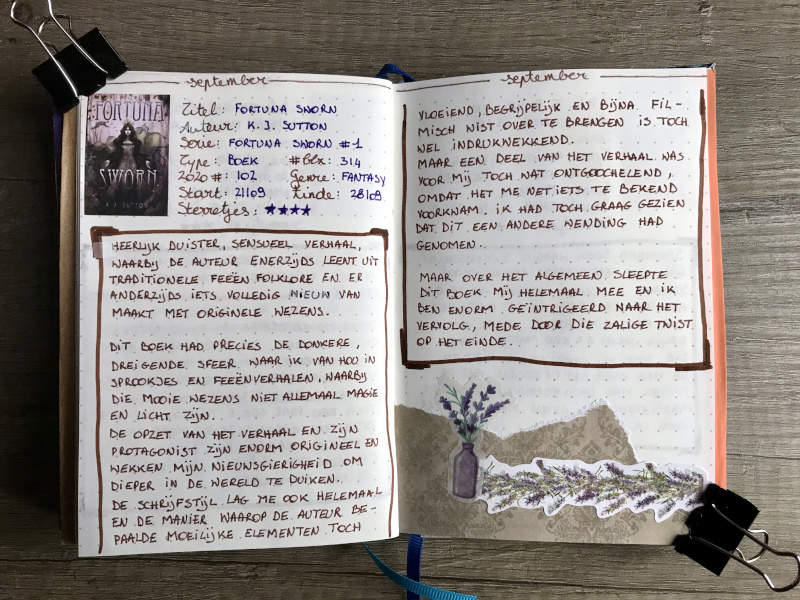 september
FORTUNA
SWORN
K.J. SUTTON
Titel: FORTUNA SWORN
Auteur: K.J. SUTTON
Serie: FORTUNA SWORN #1
Type: BOEK #blz: 314
2020 #: 102 Genre: FANTASY
Start: 21/09 Einde: 28/09
Sterretjes: ★★★★
HEERLIJK DUISTER, SENSUEEL VERHAAL,
WAARBIJ DE AUTEUR ENERZIJDS LEENT UIT
TRADITIONELE FEEËN FOLKLORE EN ER
ANDERZIJDS IETS VOLLEDIG NIEUW VAN
MAAKT MET ORIGINELE WEZENS.
DIT BOEK HAD PRECIES DE DONKERE,
DREIGENDE SFEER WAAR IK VAN HOU IN
SPROOKJES EN FEEËNVERHALEN, WAARBIJ
DIE MOOIE WEZENS NIET ALLEMAAL MAGIE
EN LICHT ZIJN.
DE OPZET VAN HET VERHAAL EN ZIJN
PROTAGONIST ZIJN ENORM ORIGINEEL EN
WEKKEN MIJN NIEUWSGIERIGHEID OM
DIEPER IN DE WERELD TE DUIKEN.
DE SCHRIJFSTIJL LAG ME OOK HELEMAAL
EN DE MANIER WAAROP DE AUTEUR BE-
PAALDE MOEILIJKE ELEMENTEN TOCH
september
VLOEIEND, BEGRIJPELIJK EN BIJNA FIL-
MISCH WIST OVER TE BRENGEN IS TOCH
WEL INDRUKWEKKEND.
MAAR EEN DEEL VAN HET VERHAAL WAS
VOOR MIJ TOCH WAT ONTGOOCHELEND,
OMDAT HET ME NET IETS TE BEKEND
VOORKWAM. IK HAD TOCH GRAAG GEZIEN
DAT DIT EEN ANDERE WENDING HAD
GENOMEN.
MAAR OVER HET ALGEMEEN SLEEPTE
DIT BOEK MIJ HELEMAAL MEE EN IK
BEN ENORM GEÏNTRIGEERD NAAR HET
VERVOLG, MEDE DOOR DIE ZALIGE TWIST
OP HET EINDE.